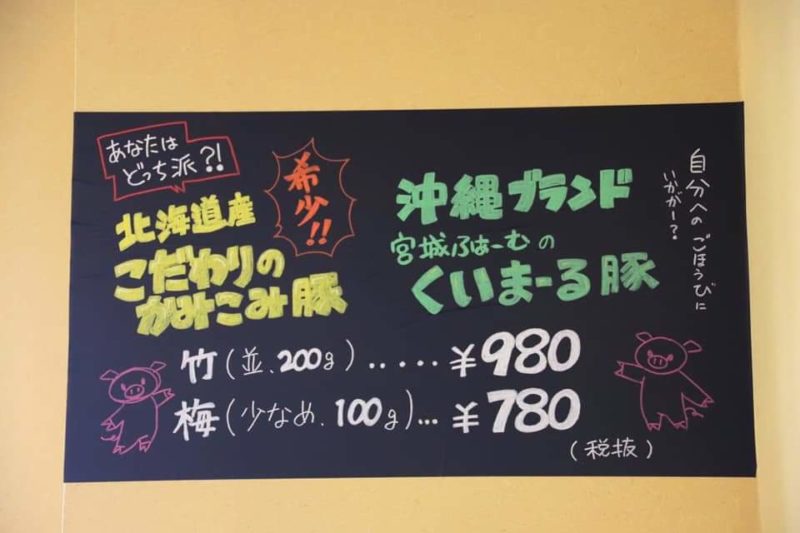 あなたは
どっち派?!
希少!!
北海道産
こだわりの
かみこみ豚
沖縄ブランド
宮城ふぁーむの
くいまーる豚
自分へのごほうびに
いかがー?
竹(並、200g).....¥980
梅(少なめ、100g)...¥780
(税抜)